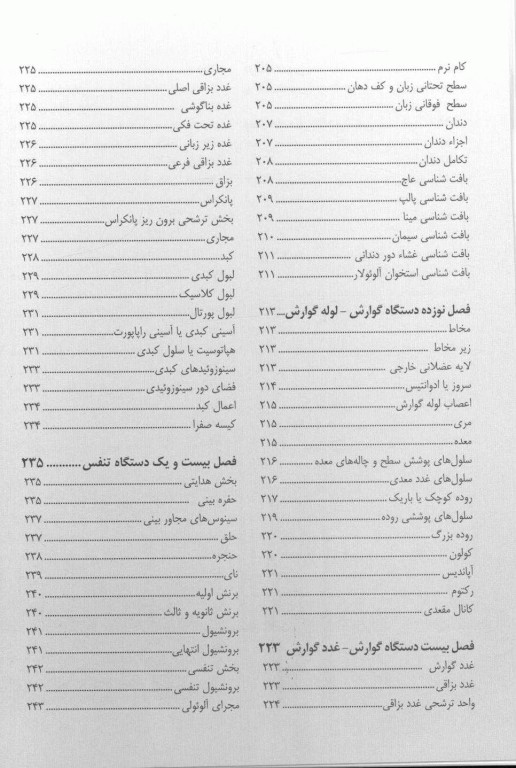 کام نرم ........ ۲۰۵
سطح تحتانی زبان و کف دهان ........ ۲۰۵
سطح فوقانی زبان ........ ۲۰۵
دندان ........ ۲۰۷
اجزاء دندان ........ ۲۰۷
تکامل دندان ........ ۲۰۸
بافت شناسی عاج ........ ۲۰۸
بافت شناسی پالپ ........ ۲۰۹
بافت شناسی مینا ........ ۲۰۹
بافت شناسی سیمان ........ ۲۱۰
بافت شناسی غشاء دور دندانی ........ ۲۱۱
بافت شناسی استخوان آلوئولار ........ ۲۱۱
فصل نوزده دستگاه گوارش - لوله گوارش ... ۲۱۳
مخاط ........ ۲۱۳
زیر مخاط ........ ۲۱۳
لایه عضلانی خارجی ........ ۲۱۳
سروز یا ادوانتیس ........ ۲۱۴
اعصاب لوله گوارش ........ ۲۱۵
مری ........ ۲۱۵
معده ........ ۲۱۵
سلول‌های پوشش سطح و چاله‌های معده ........ ۲۱۶
سلول‌های غدد معدی ........ ۲۱۶
روده کوچک یا باریک ........ ۲۱۷
سلول‌های پوششی روده ........ ۲۱۹
روده بزرگ ........ ۲۲۰
کولون ........ ۲۲۰
آپاندیس ........ ۲۲۱
رکتوم ........ ۲۲۱
کانال مقعدی ........ ۲۲۱
فصل بیست دستگاه گوارش - غدد گوارش ۲۲۳
غدد گوارش ........ ۲۲۳
غدد بزاقی ........ ۲۲۳
واحد ترشحی غدد بزاقی ........ ۲۲۴
مجاری ........ ۲۲۵
غدد بزاقی اصلی ........ ۲۲۵
غده بناگوشی ........ ۲۲۵
غده تحت فکی ........ ۲۲۵
غده زیر زبانی ........ ۲۲۶
غدد بزاقی فرعی ........ ۲۲۶
بزاق ........ ۲۲۶
پانکراس ........ ۲۲۷
بخش ترشحی برون ریز پانکراس ........ ۲۲۷
مجاری ........ ۲۲۷
کبد ........ ۲۲۸
لبول کبدی ........ ۲۲۹
لبول کلاسیک ........ ۲۲۹
لبول پورتال ........ ۲۳۱
آسینی کبدی یا آسینی راپاپورت ........ ۲۳۱
هپاتوسیت یا سلول کبدی ........ ۲۳۱
سینوزوئیدهای کبدی ........ ۲۳۳
فضای دور سینوزوئیدی ........ ۲۳۳
اعمال کبد ........ ۲۳۴
کیسه صفرا ........ ۲۳۴
فصل بیست و یک دستگاه تنفس ........ ۲۳۵
بخش هدایتی ........ ۲۳۵
حفره بینی ........ ۲۳۵
سینوس‌های مجاور بینی ........ ۲۳۷
حلق ........ ۲۳۷
حنجره ........ ۲۳۸
نای ........ ۲۳۹
برنش اولیه ........ ۲۴۰
برنش ثانویه و ثالث ........ ۲۴۰
برونشیول ........ ۲۴۱
برونشیول انتهایی ........ ۲۴۱
بخش تنفسی ........ ۲۴۲
برونشیول تنفسی ........ ۲۴۲
مجرای آلوئولی ........ ۲۴۳